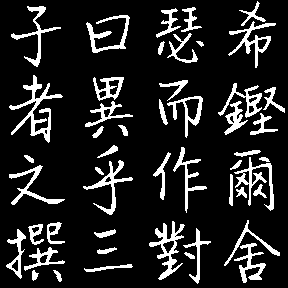 希鏗爾舍
瑟而作對
曰異乎三
子者文撰